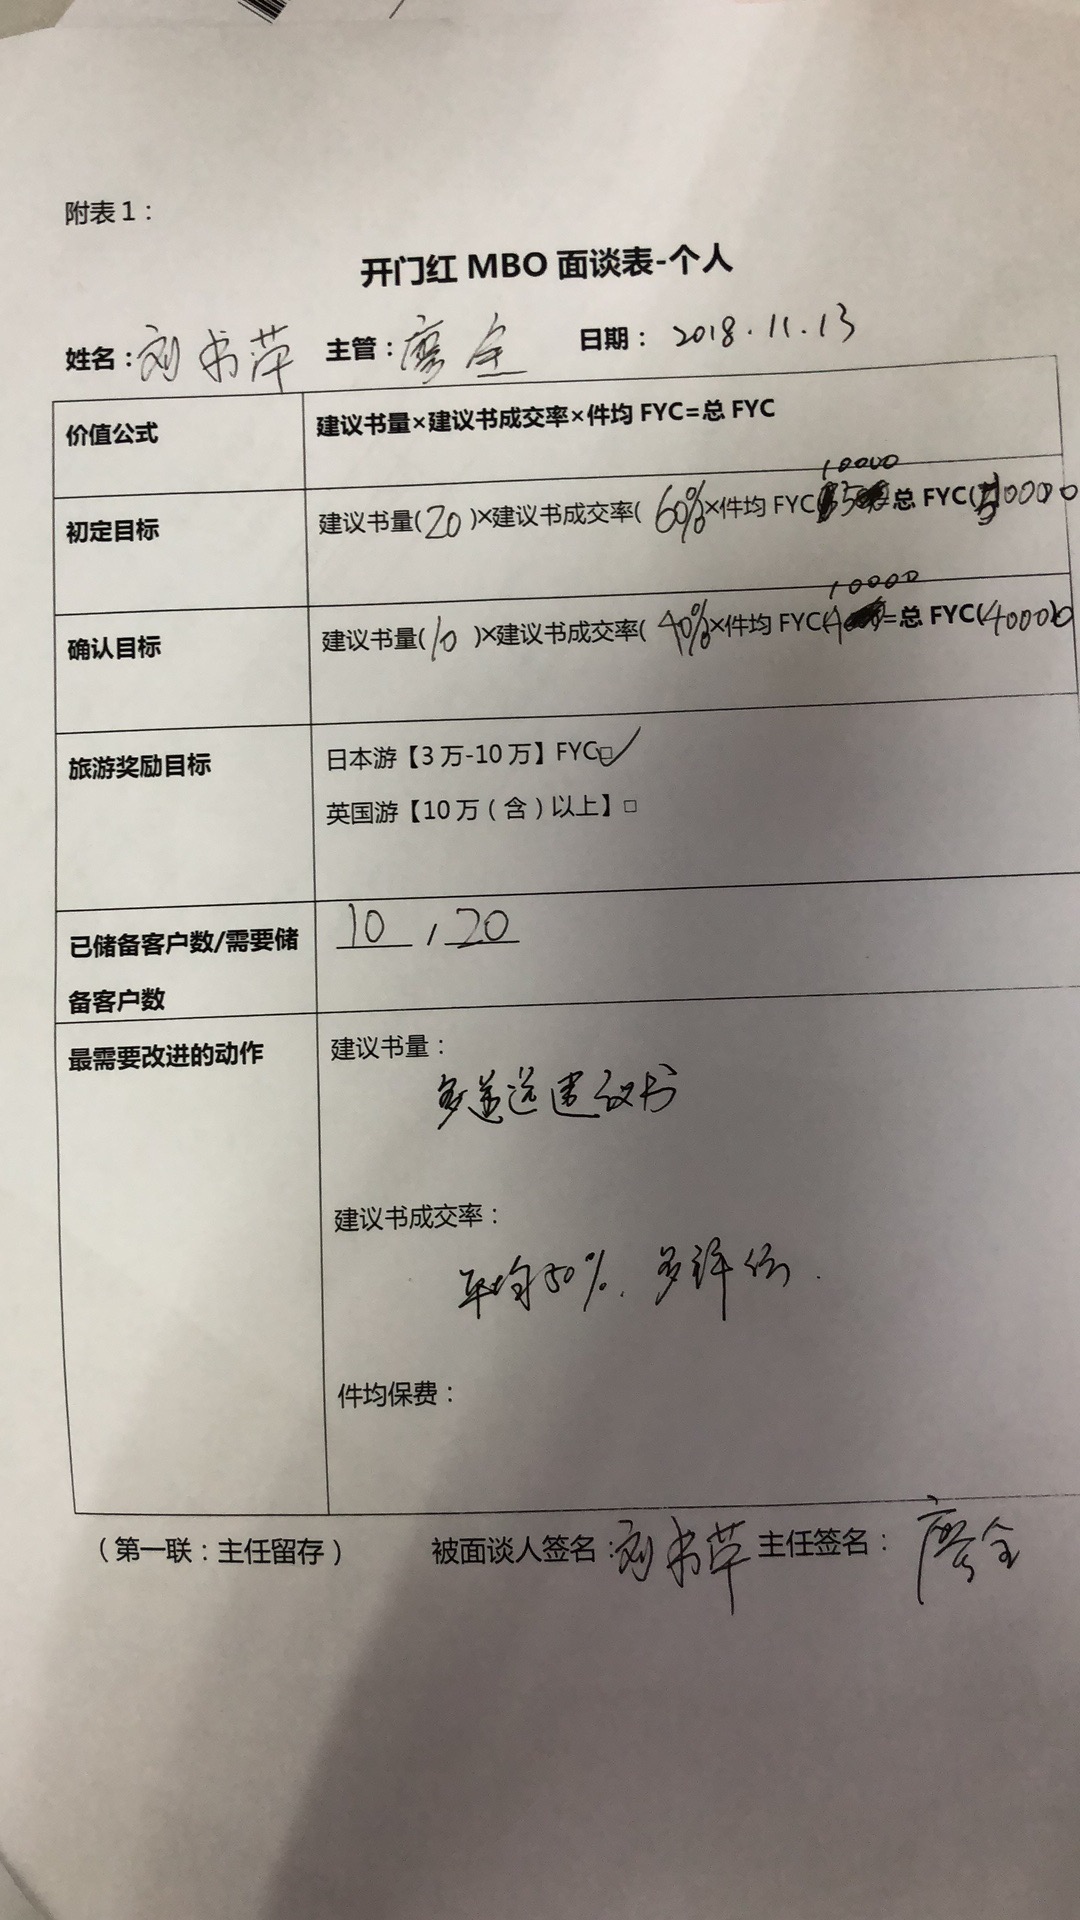 附表1：
开门红 MBO 面谈表-个人
姓名：刘书萍 主管：廖全 日期：2018.11.13
价值公式 建议书量×建议书成交率×件均 FYC=总 FYC
10000
初定目标 建议书量(20)×建议书成交率(60%×件均 FYC =总 FYC( 0000
10000
确认目标 建议书量(10)×建议书成交率(40%×件均 FYC( =总 FYC(40000
旅游奖励目标 日本游【3万-10万】FYC□✓
英国游【10万（含）以上】□
已储备客户数/需要储 10 , 20
备客户数
最需要改进的动作 建议书量：
多送建议书
建议书成交率：
平均50%. 多
件均保费：
（第一联：主任留存） 被面谈人签名：刘书萍 主任签名：廖全